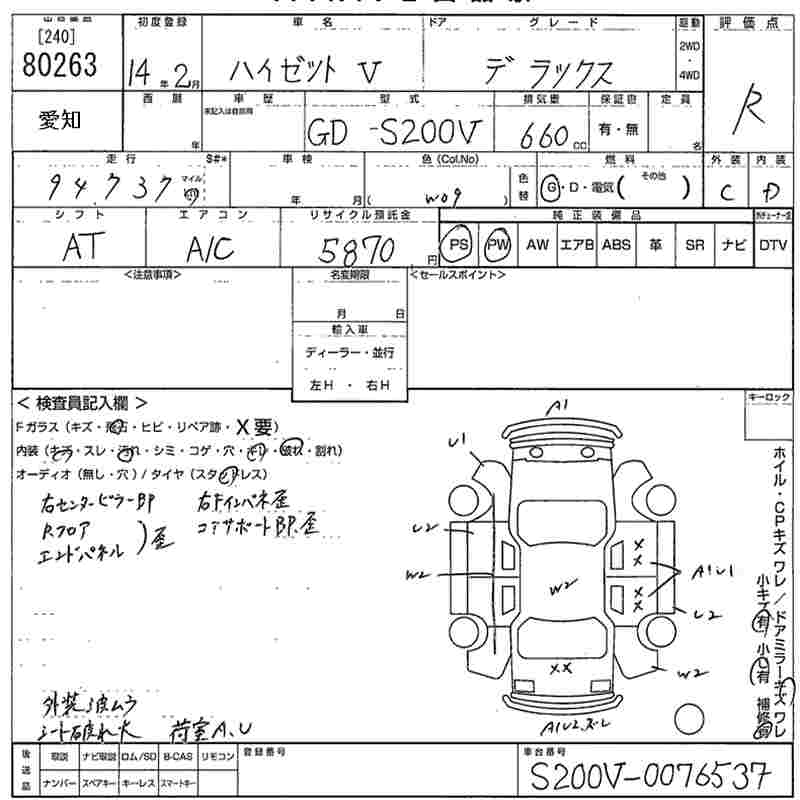 [240]
80263
初度登録
14年2月
車名
ハイゼット V
ドア
グレード
デラックス
駆動
2WD
・
4WD
評価点
R
愛知
西暦
年
車歴
型式
GD-S200V
排気量
660cc
保証書
有・無
定員
名
走行
94,737
マイル
km
S#*
車検
年 月
色(Col.No)
( W09 )
色替
燃料
G・D・電気( その他 )
外装
C
内装
D
シフト
AT
エアコン
A/C
リサイクル預託金
5870円
純正装備品
PS PW AW エアB ABS 革 SR ナビ DTV
<注意事項>
名変期限
月 日
輸入車
ディーラー・並行
左H・右H
<セールスポイント>
<検査員記入欄>
Fガラス(キズ・飛石・ヒビ・リペア跡・X要)
内装(キズ・スレ・汚れ・シミ・コゲ・穴・キレ・破れ・割れ)
オーディオ(無し・穴)/タイヤ(スタッドレス)
右センターピラーBP 右Fインパネ歪
Rフロア
エンドパネル
)歪
コアサポートBP.歪
外装 波ムラ
シート破れ大 荷室A.U
キーロック
ホイル・CPキズワレ/ドアミラーキズワレ
小キズ有 小U有 補修跡
A1
U1
U2
W2
W2
XX
XX
A1U1
U2
XX
W2
A1U2.ズレ
後送品
取説 ナビ取説 ロム/SD B-CAS リモコン
ナンバー スペアキー キーレス スマートキー
登録番号
車台番号
S200V-0076537